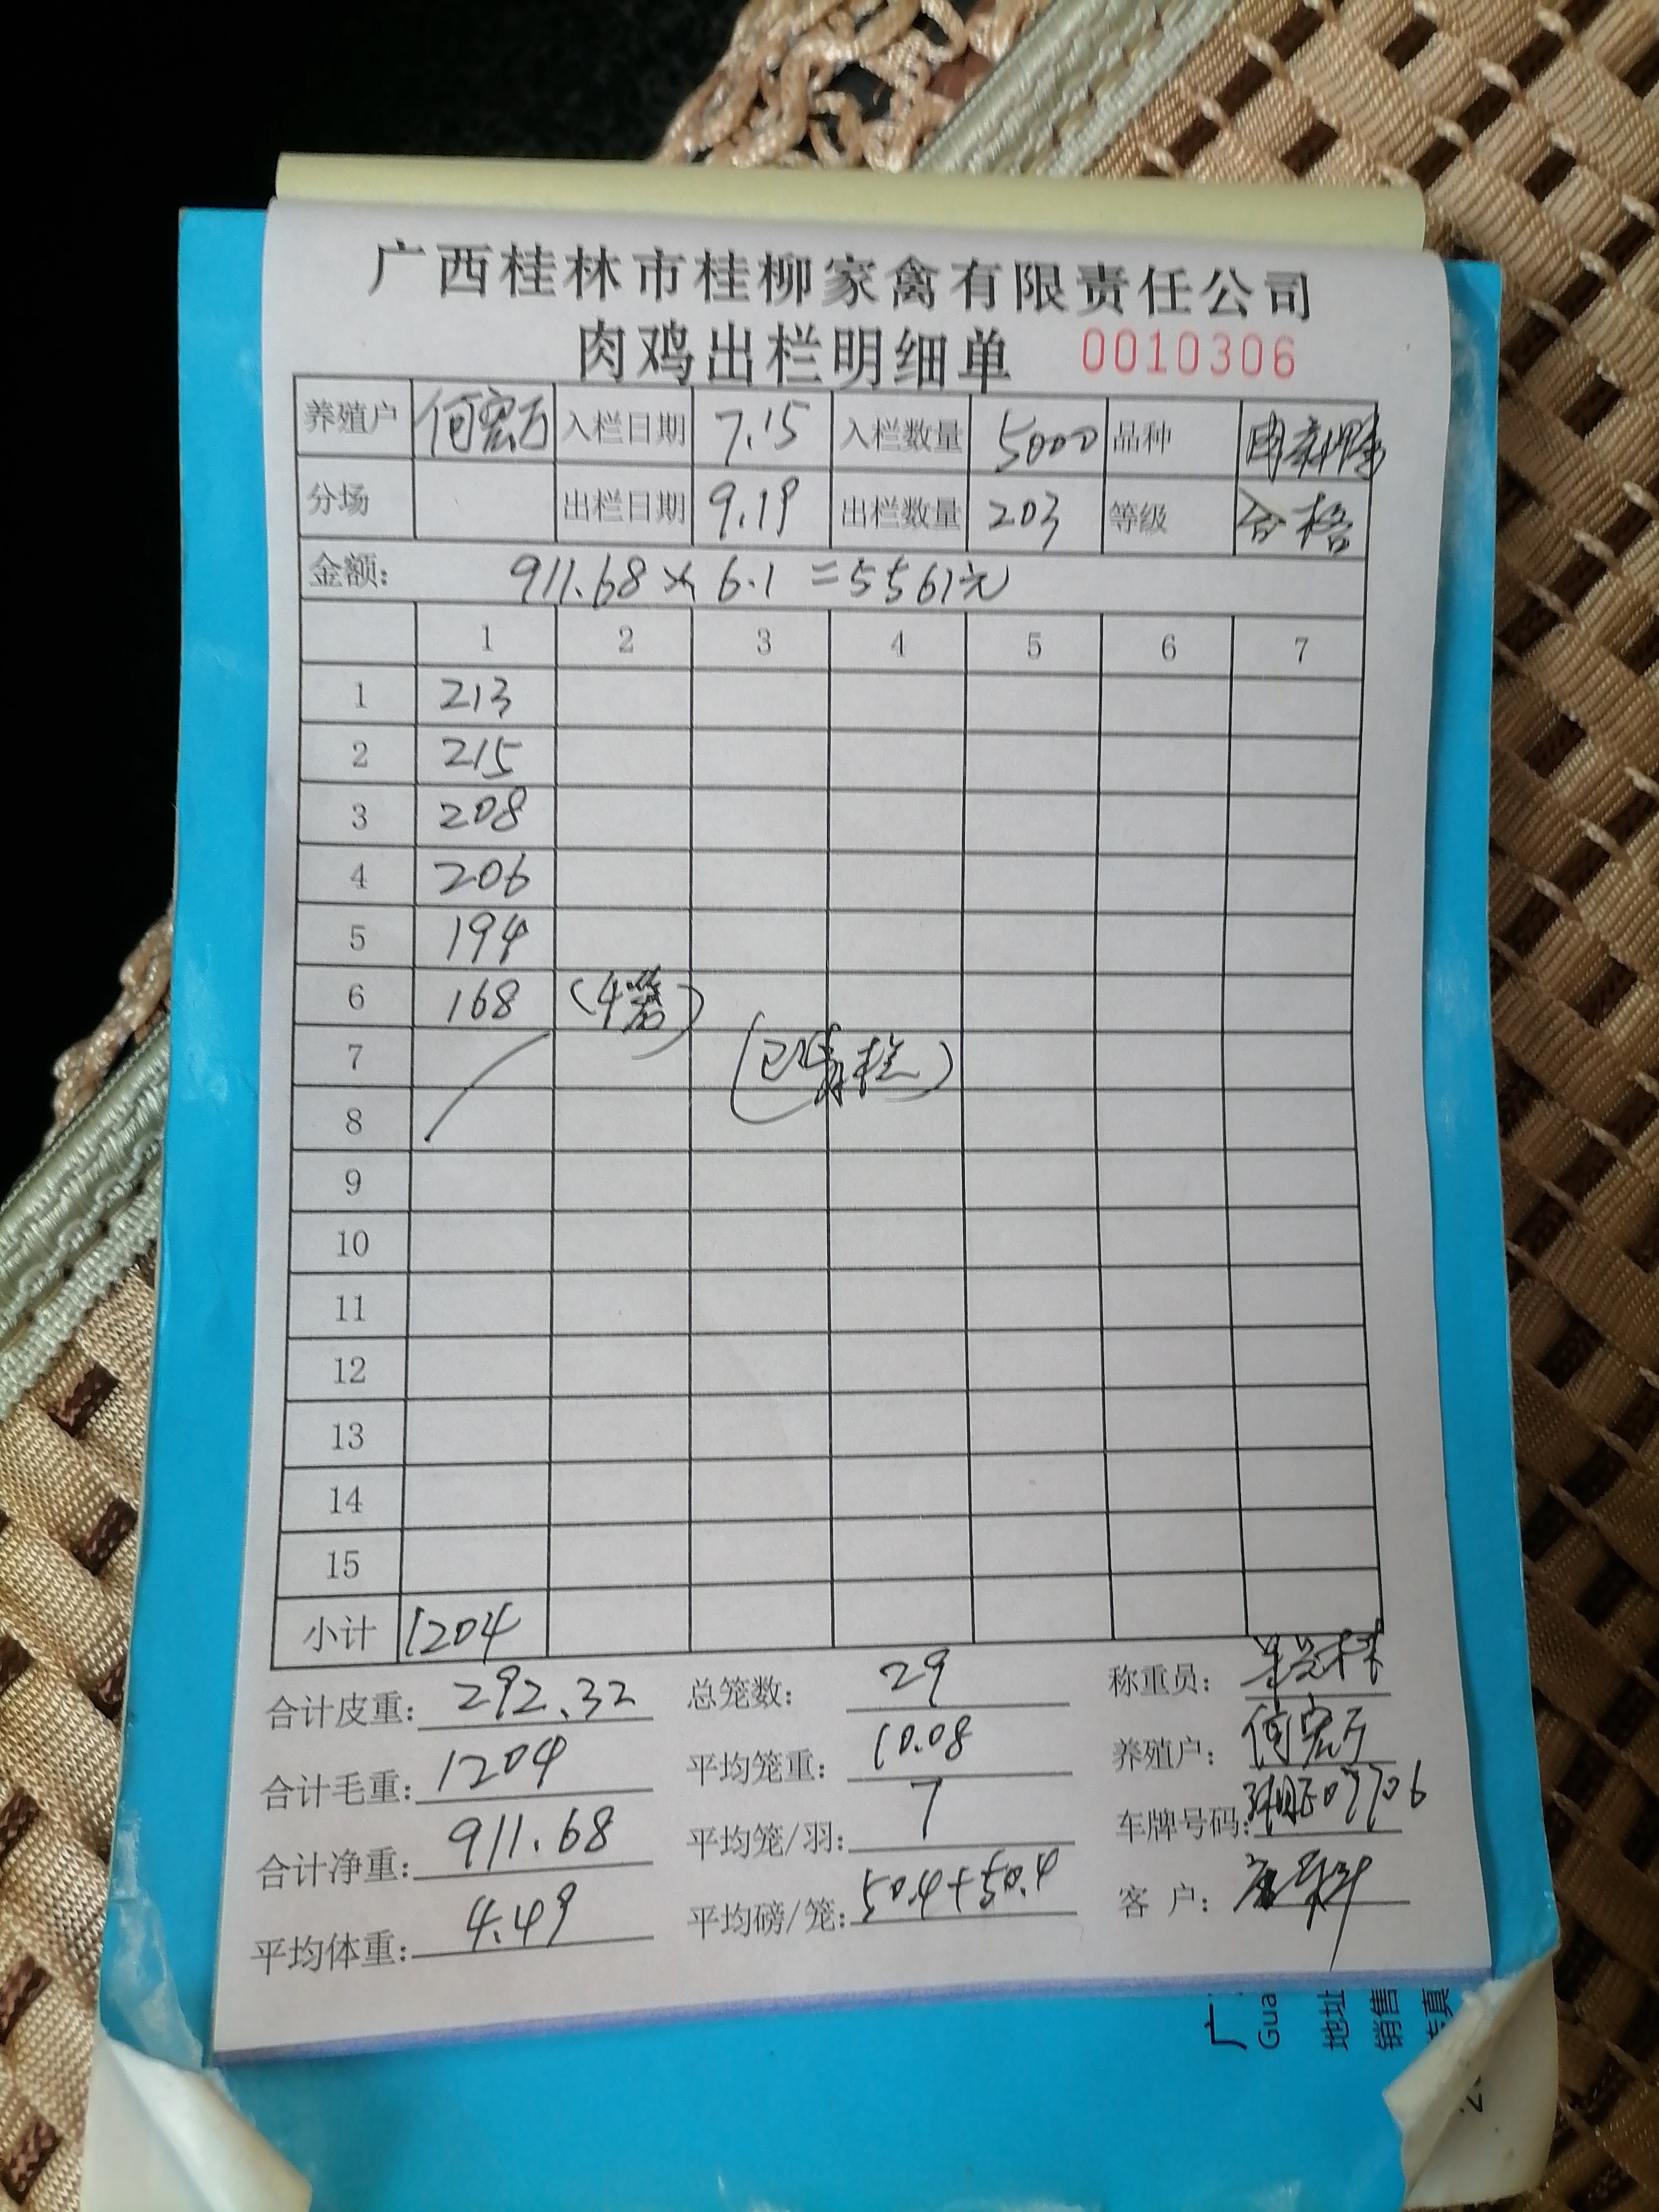 广西桂林市桂柳家禽有限责任公司
肉鸡出栏明细单 0010306
养殖户 何宏万 入栏日期 7.15 入栏数量 5000 品种
分场 出栏日期 9.19 出栏数量 203 等级 合格
金额: 911.68 × 6.1 = 5561元
1 2 3 4 5 6 7
1 213
2 215
3 208
4 206
5 194
6 168 (4笼)
7 (已清栏)
8
9
10
11
12
13
14
15
小计 1204
合计皮重: 292.32 总笼数: 29 称重员:
合计毛重: 1204 平均笼重: 10.08 养殖户: 何宏万
合计净重: 911.68 平均笼/羽: 7 车牌号码:
平均体重: 4.49 平均磅/笼: 50.4+50.4 客 户:
广
Gua
地址
销售
传真